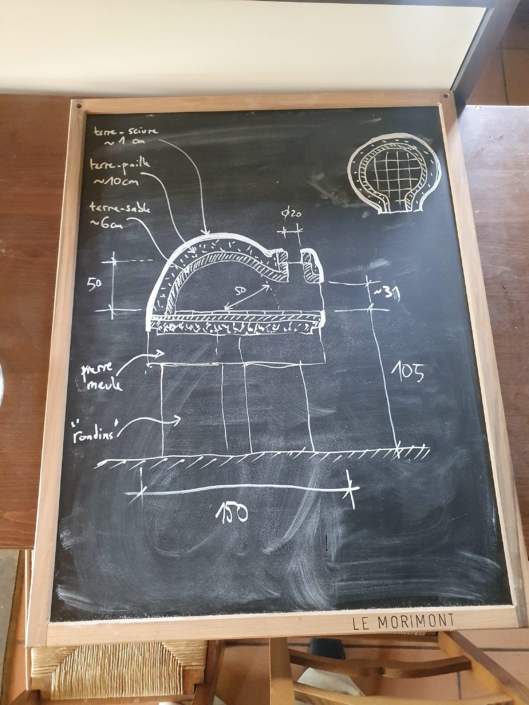 terre-sciure
~1 cm
terre-paille
~10cm
terre-sable
~6cm
φ20
50
50
~31
pierre
meule
105
"rondins"
150
LE MORIMONT